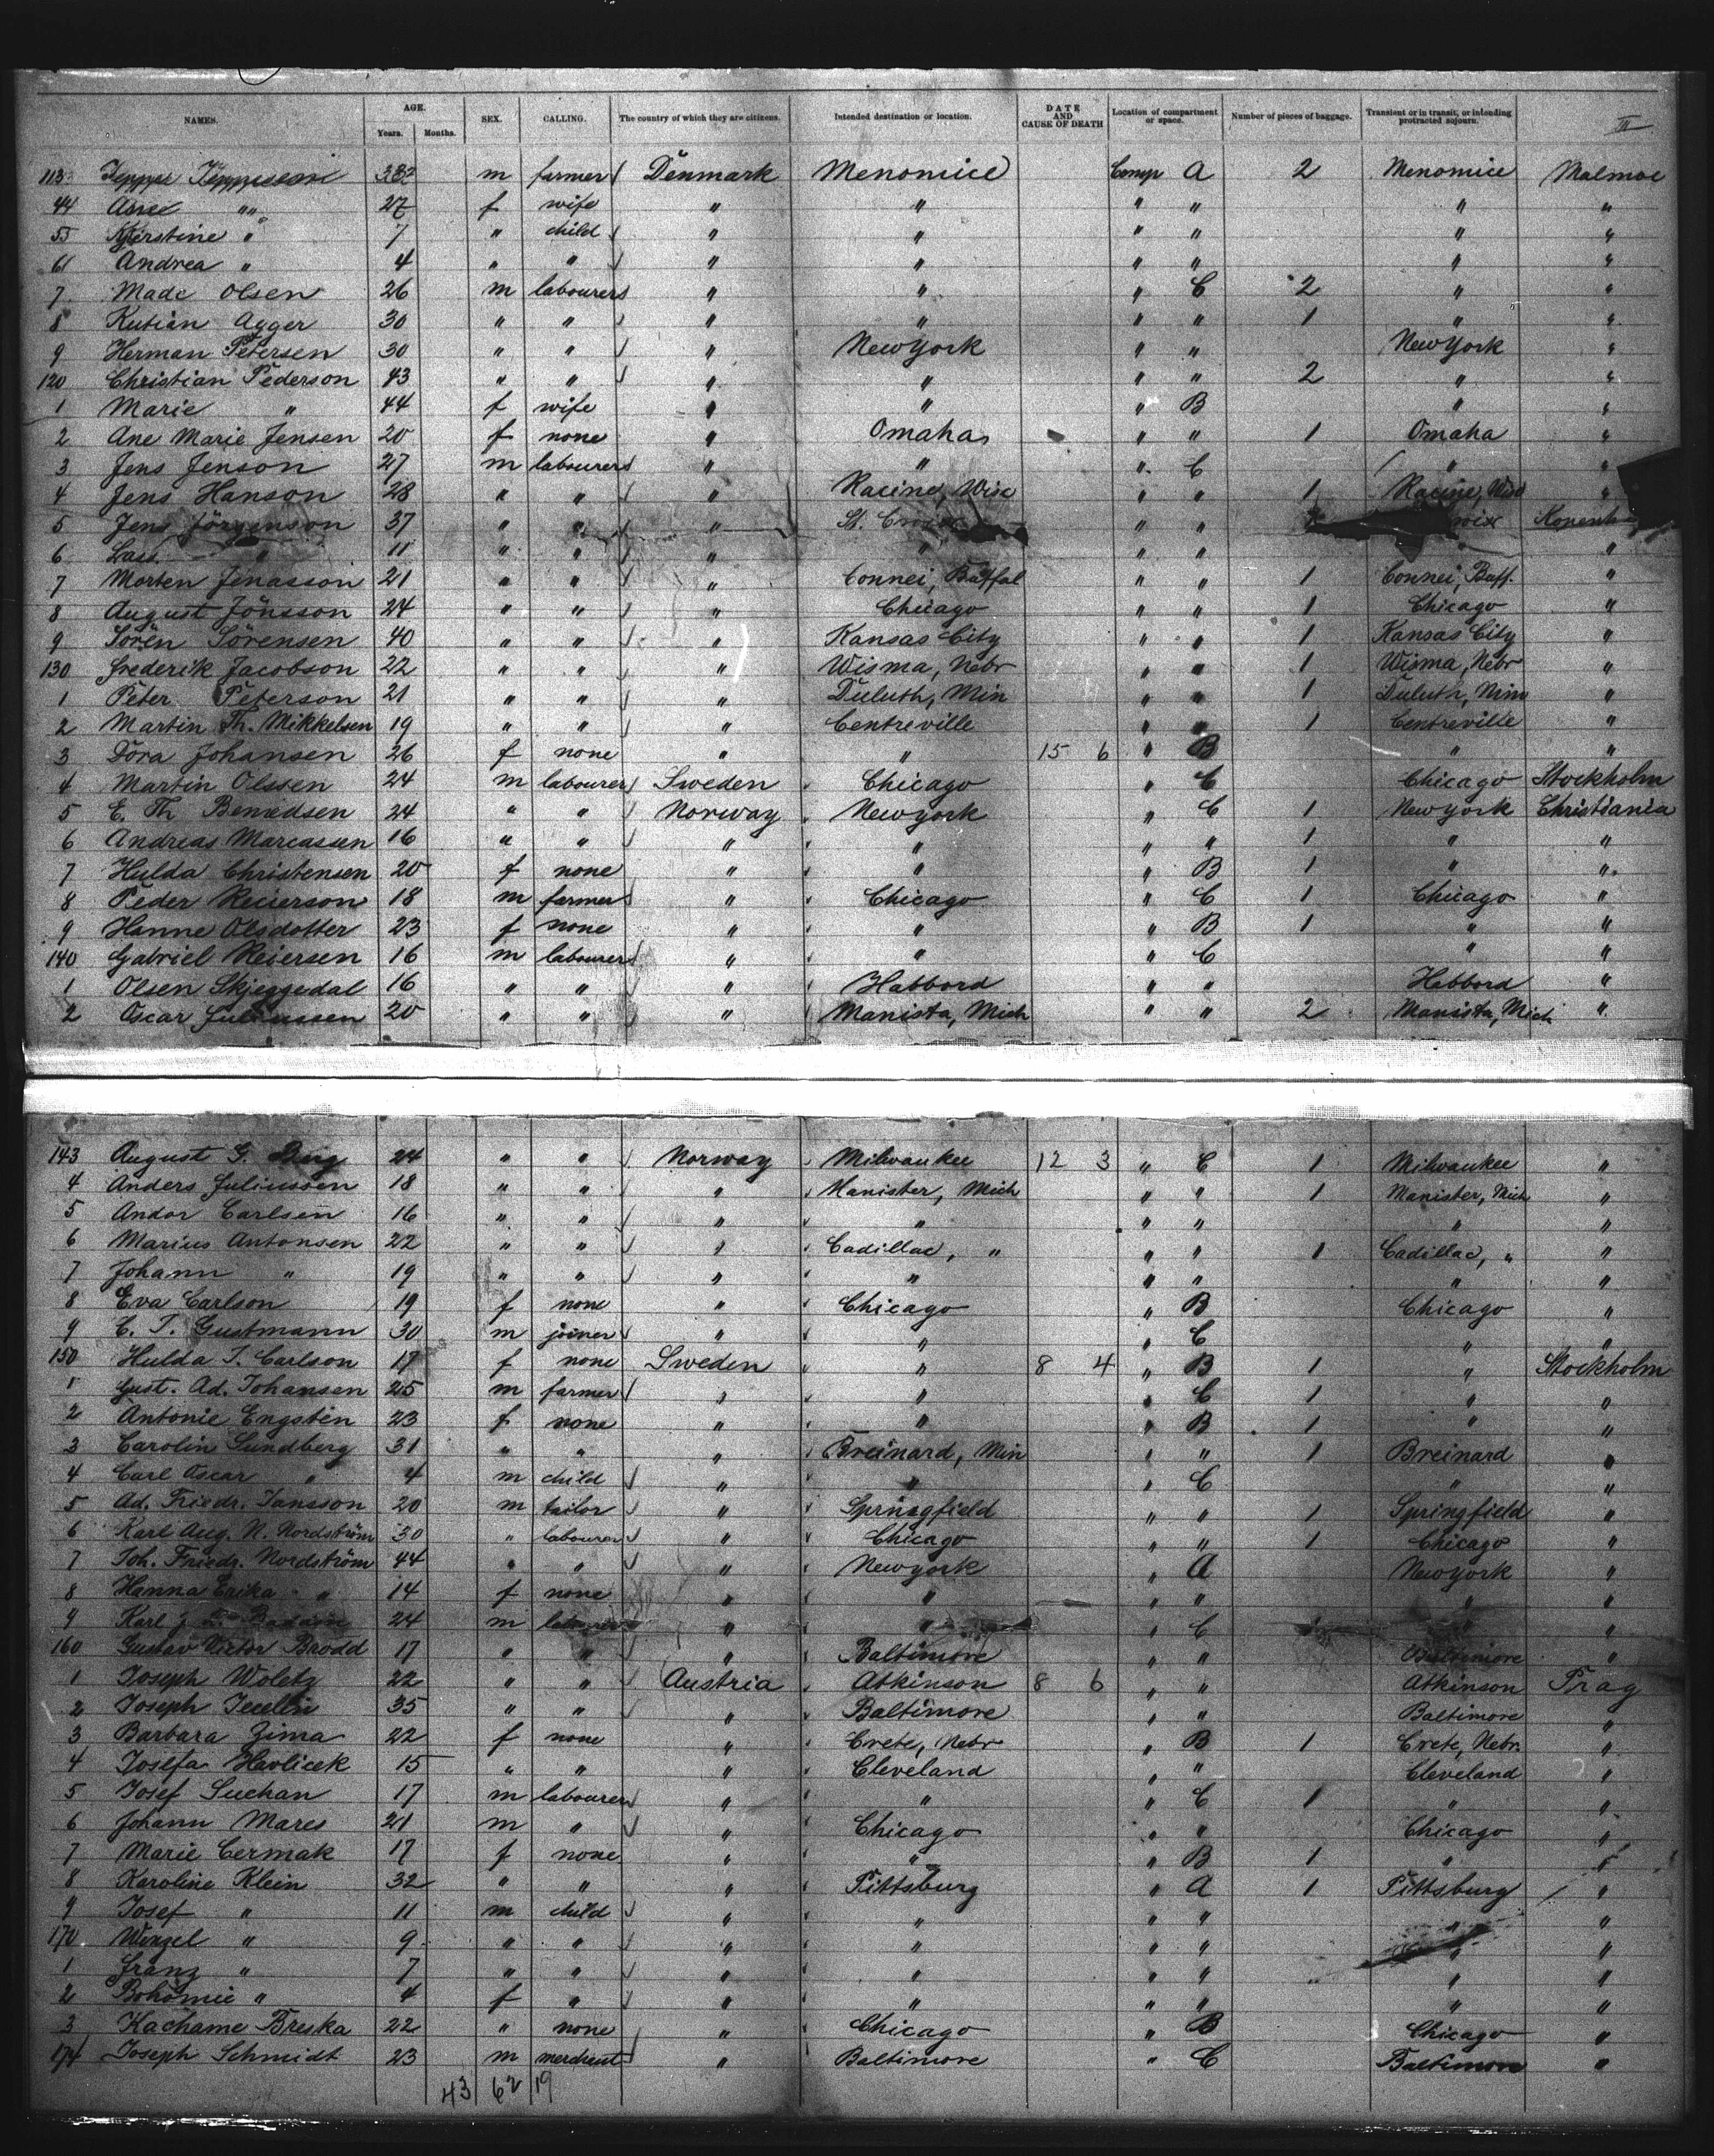 NAMES. AGE. Years. Months. SEX. CALLING. The country of which they are citizens. Intended destination or location. DATE AND CAUSE OF DEATH Location of compartment or space. Number of pieces of baggage. Transient or in transit, or intending protracted sojourn. II
113 Jeppe Jeppesen m farmer Denmark Menomiee Comp A 2 Menomiee Malmoe
44 " 27 f wife " " " " " "
55 Kjerstine " 7 " child " " " " " "
61 Andrea " 4 " " " " " " " "
7 Made Olsen 26 m labourer " " " C 2 " "
8 Kutian Agger 30 " " " " " " 1 " "
9 Herman Petersen 30 " " " New York " " New York "
120 Christian Pederson 43 " " " " " " 2 " "
1 Marie " 44 f wife " " " B " "
2 Ane Marie Jensen 20 f none " Omaha " " 1 Omaha "
3 Jens Jenson 27 m labourer " " " C " "
4 Jens Hanson 28 " " " Racine, Wisc " " 1 Racine, Wisc "
5 Jens Jörgenson 37 " " " St. " " Kopenh
6 Lass " 11 " " " " " " " "
7 Morten Jenasson 21 " " " Connei, Buffal " " 1 Connei, Buff. "
8 August Jönsson 24 " " " Chicago " " 1 Chicago "
9 Sören Sörensen 40 " " " Kansas City " " 1 Kansas City "
130 Frederik Jacobson 22 " " " Wisma, Nebr " " 1 Wisma, Nebr "
1 Peter Peterson 21 " " " Duluth, Min " " 1 Duluth, Min "
2 Martin Th. Mikkelsen 19 " " " Centreville " " 1 Centreville "
3 Dora Johansen 26 f none " " 15 6 " B " "
4 Martin Olssen 24 m labourer Sweden Chicago " C Chicago Stockholm
5 E. Th Benedsen 24 " " Norway New York " C 1 New York Christiania
6 Andreas Marcassen 16 " " " " " " 1 " "
7 Hulda Christensen 20 f none " " " B 1 " "
8 Peder Reierson 18 m farmer " Chicago " C 1 Chicago "
9 Hanne Olsdotter 23 f none " " " B 1 " "
140 Gabriel Reiersen 16 m labourer " " " C " "
1 Olsen Skjeggedal 16 " " " Habbord " " Habbord "
2 Oscar Juliussen 20 " " " Manista, Mich " " 2 Manista, Mich "
143 August G. Berg 24 " " Norway Milwaukee 12 3 " C 1 Milwaukee "
4 Anders Juliussen 18 " " " Manister, Mich " " 1 Manister, Mich "
5 Andor Carlsen 16 " " " " " " " "
6 Marius Antonsen 22 " " " Cadillac, " " " 1 Cadillac, " "
7 Johann " 19 " " " " " " " "
8 Eva Carlson 19 f none " Chicago " B Chicago "
9 C. T. Gustmann 30 m joiner " " " C " "
150 Hulda T. Carlson 17 f none Sweden " 8 4 " B 1 " Stockholm
1 Gust. Ad. Johansen 25 m farmer " " " C 1 " "
2 Antonie Engstén 23 f none " " " B 1 " "
3 Carolin Sundberg 31 " " " Breinard, Min " " 1 Breinard "
4 Carl Oscar " 4 m child " " " C " "
5 Ad. Friedr. Jansson 20 m tailor " Springfield " " 1 Springfield "
6 Karl Aug. N. Nordström 30 " labourer " Chicago " " 1 Chicago "
7 Joh. Friedr. Nordström 44 " " " New York " A New York "
8 Hanna Erika " 14 f none " " " " " "
9 Karl 24 m labourer " " " C " "
160 Gustav Victor Brodd 17 " " " Baltimore " " Baltimore "
1 Joseph Woletz 22 " " Austria Atkinson 8 6 " " Atkinson Prag
2 Joseph 35 " " " Baltimore " " Baltimore "
3 Barbara Zima 22 f none " Crete, Nebr " B 1 Crete, Nebr. "
4 Josefa Havlicek 15 " " " Cleveland " " Cleveland "
5 Josef Suchan 17 m labourer " " " C 1 " "
6 Johann Mares 21 m " " Chicago " " Chicago "
7 Marie Cermak 17 f none " " " B 1 " "
8 Karoline Klein 32 " " " Pittsburg " A 1 Pittsburg "
9 Josef " 11 m child " " " " " "
170 Wenzel " 9 " " " " " " " "
1 Franz " 7 " " " " " " " "
2 Bohomie " 4 f " " " " " " "
3 Kachame Breska 22 " none " Chicago " B Chicago "
174 Joseph Schmidt 23 m merchant " Baltimore " C Baltimore "
43 62 19